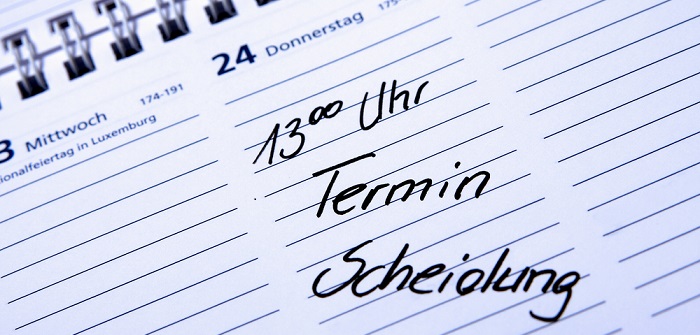 24 Donnerstag 175-
3 Mittwoch 174-191
ionalfeiertag in Luxemburg
13⁰⁰ Uhr
Termin
Scheidung